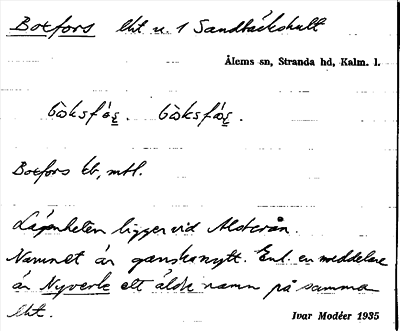 Boxfors lht u. 1 Sandbäckshult
Ålems sn, Stranda hd, Kalm. l.
Boxfors kb, mtl.
Lägenheten ligger vid Alsterån.
Namnet är ganska nytt. Enl. en meddelare
är Nyverk ett äldre namn på samma
lht.
Ivar Modéer 1935